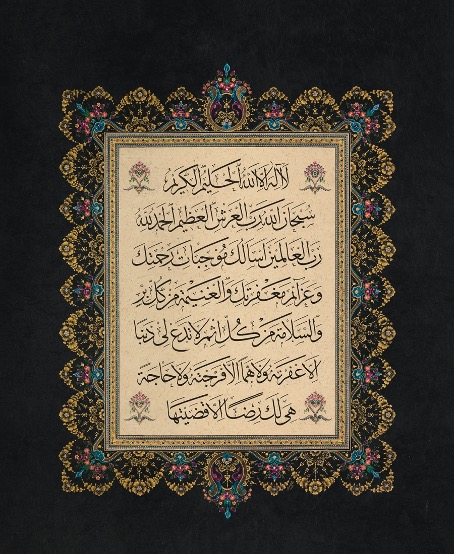 لا اله الا الله الحليم الكريم
سبحان الله رب العرش العظيم الحمد لله
رب العالمين اسالك موجبات رحمتك
وعزائم مغفرتك والغنيمة من كل بر
والسلامة من كل اثم لا تدع لي ذنبا
الا غفرته ولا هما الا فرجته ولا حاجة
هي لك رضا الا قضيتها